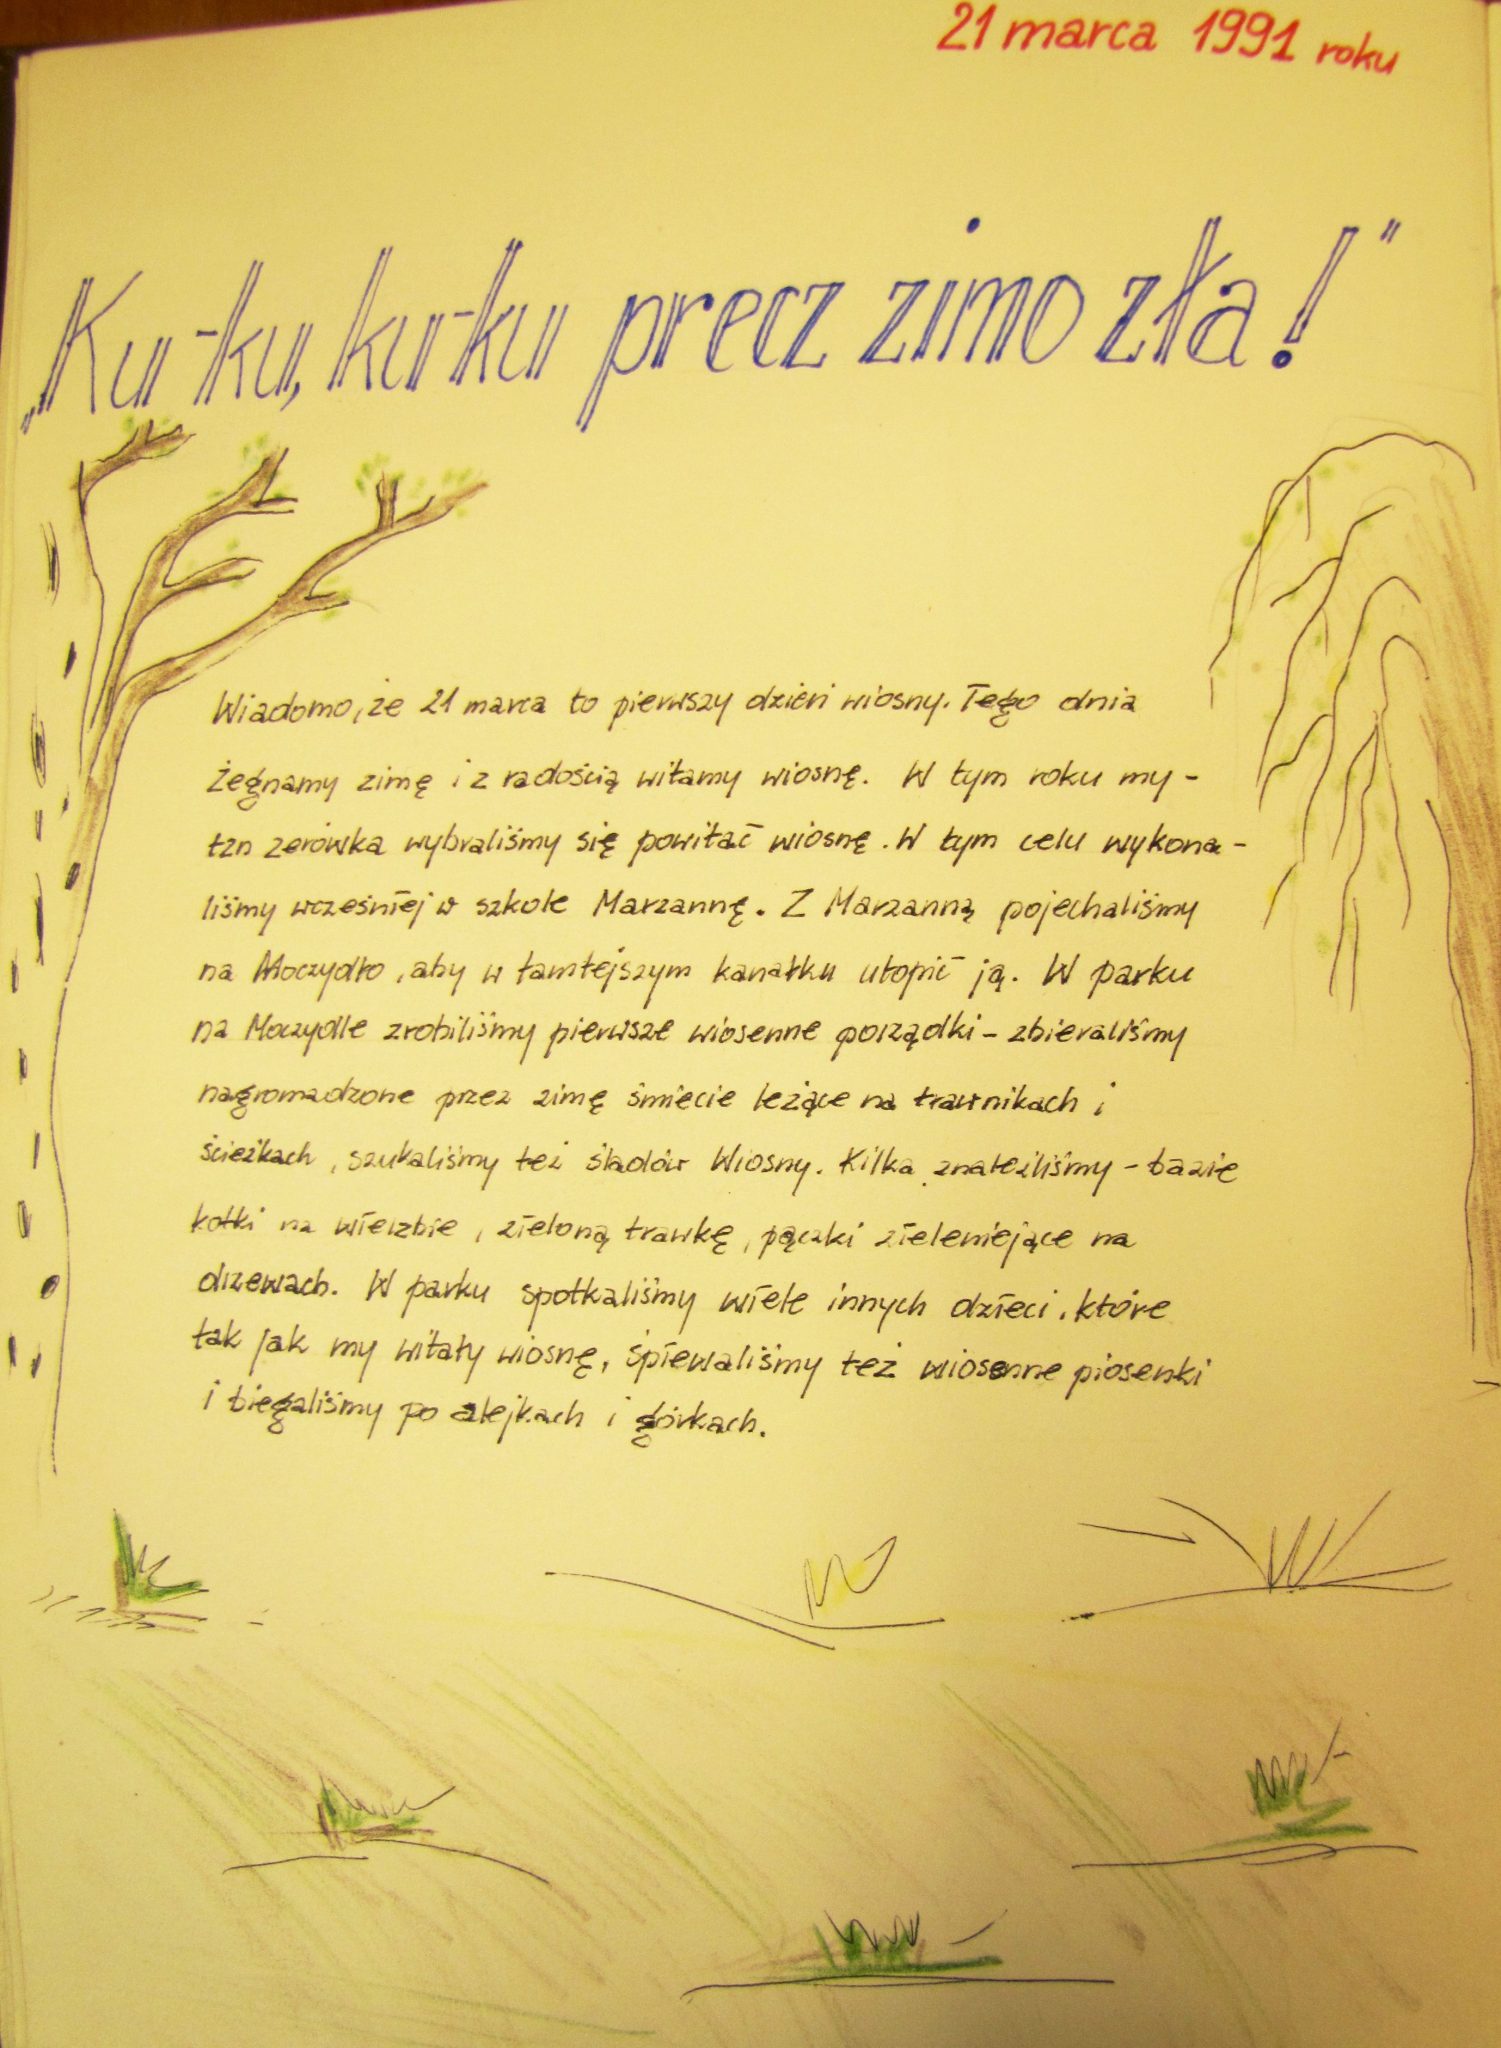 21 marca 1991 roku
„Ku-ku, ku-ku precz zimo zła!”
Wiadomo, że 21 marca to pierwszy dzień wiosny. Tego dnia
żegnamy zimę i z radością witamy wiosnę. W tym roku my-
tzn zerówka wybraliśmy się powitać wiosnę. W tym celu wykona-
liśmy wcześniej w szkole Marzannę. Z Marzanną pojechaliśmy
na Moczydło, aby w tamtejszym kanałku utopić ją. W parku
na Moczydle zrobiliśmy pierwsze wiosenne porządki - zbieraliśmy
nagromadzone przez zimę śmiecie leżące na trawnikach i
ścieżkach, szukaliśmy też śladów Wiosny. Kilka znaleźliśmy - bazie
kotki na wierzbie, zieloną trawkę, pączki zieleniejące na
drzewach. W parku spotkaliśmy wiele innych dzieci, które
tak jak my witały wiosnę, śpiewaliśmy też wiosenne piosenki
i biegaliśmy po alejkach i górkach.